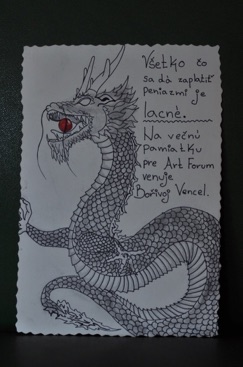 Všetko čo
sa dá zaplatiť
peniazmi je
lacné.
Na večnú
pamiatku
pre Art Forum
venuje
Bořivoj Vencel.